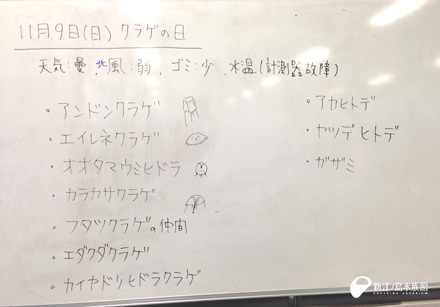 11月9日(日) クラゲの日
天気:曇、北風:弱、ゴミ:少、水温(計測器故障)
・アンドンクラゲ
・エイレネクラゲ
・オオタマウミヒドラ
・カラカサクラゲ
・フタツクラゲの仲間
・エダクダクラゲ
・カイヤドリヒドラクラゲ
・アカヒトデ
・ヤツデヒトデ
・ガザミ
新江ノ島水族館
ENOSHIMA AQUARIUM